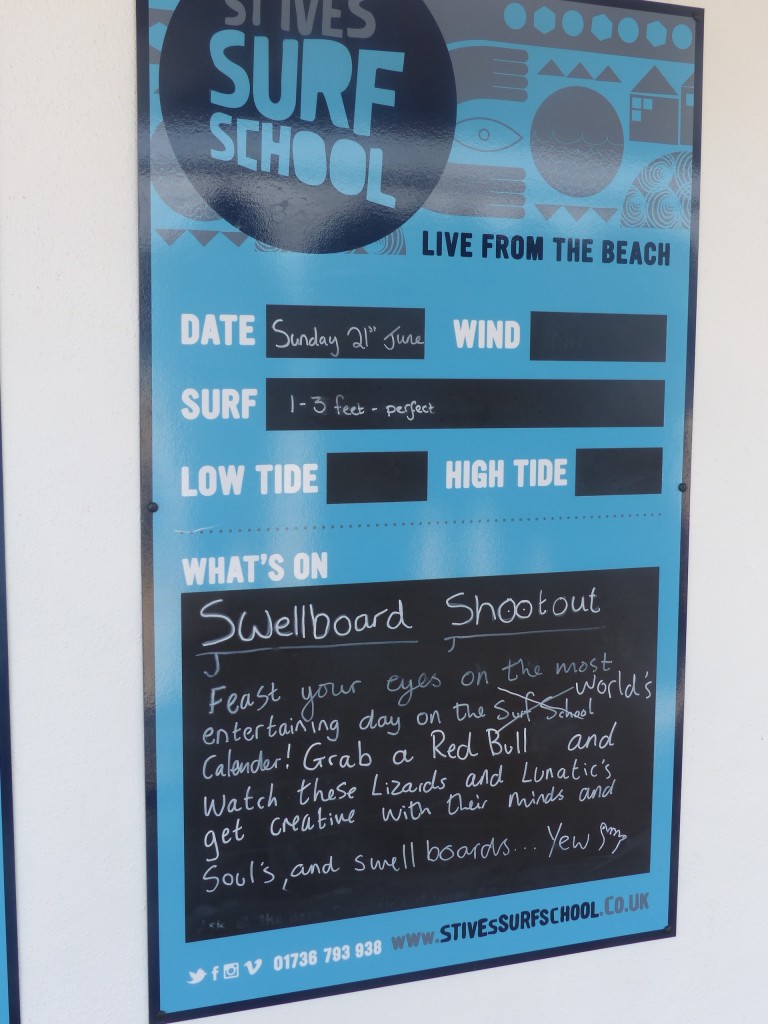 ST IVES
SURF
SCHOOL
LIVE FROM THE BEACH
DATE Sunday 21st June WIND
SURF 1-3 feet - perfect
LOW TIDE HIGH TIDE
WHAT'S ON
Swellboard Shootout
Feast your eyes on the most
entertaining day on the Surf School World's
Calender! Grab a Red Bull and
Watch these Lizards and Lunatic's
get creative with their minds and
Soul's, and swell boards... Yew
01736 793 938 WWW.STIVESSURFSCHOOL.CO.UK